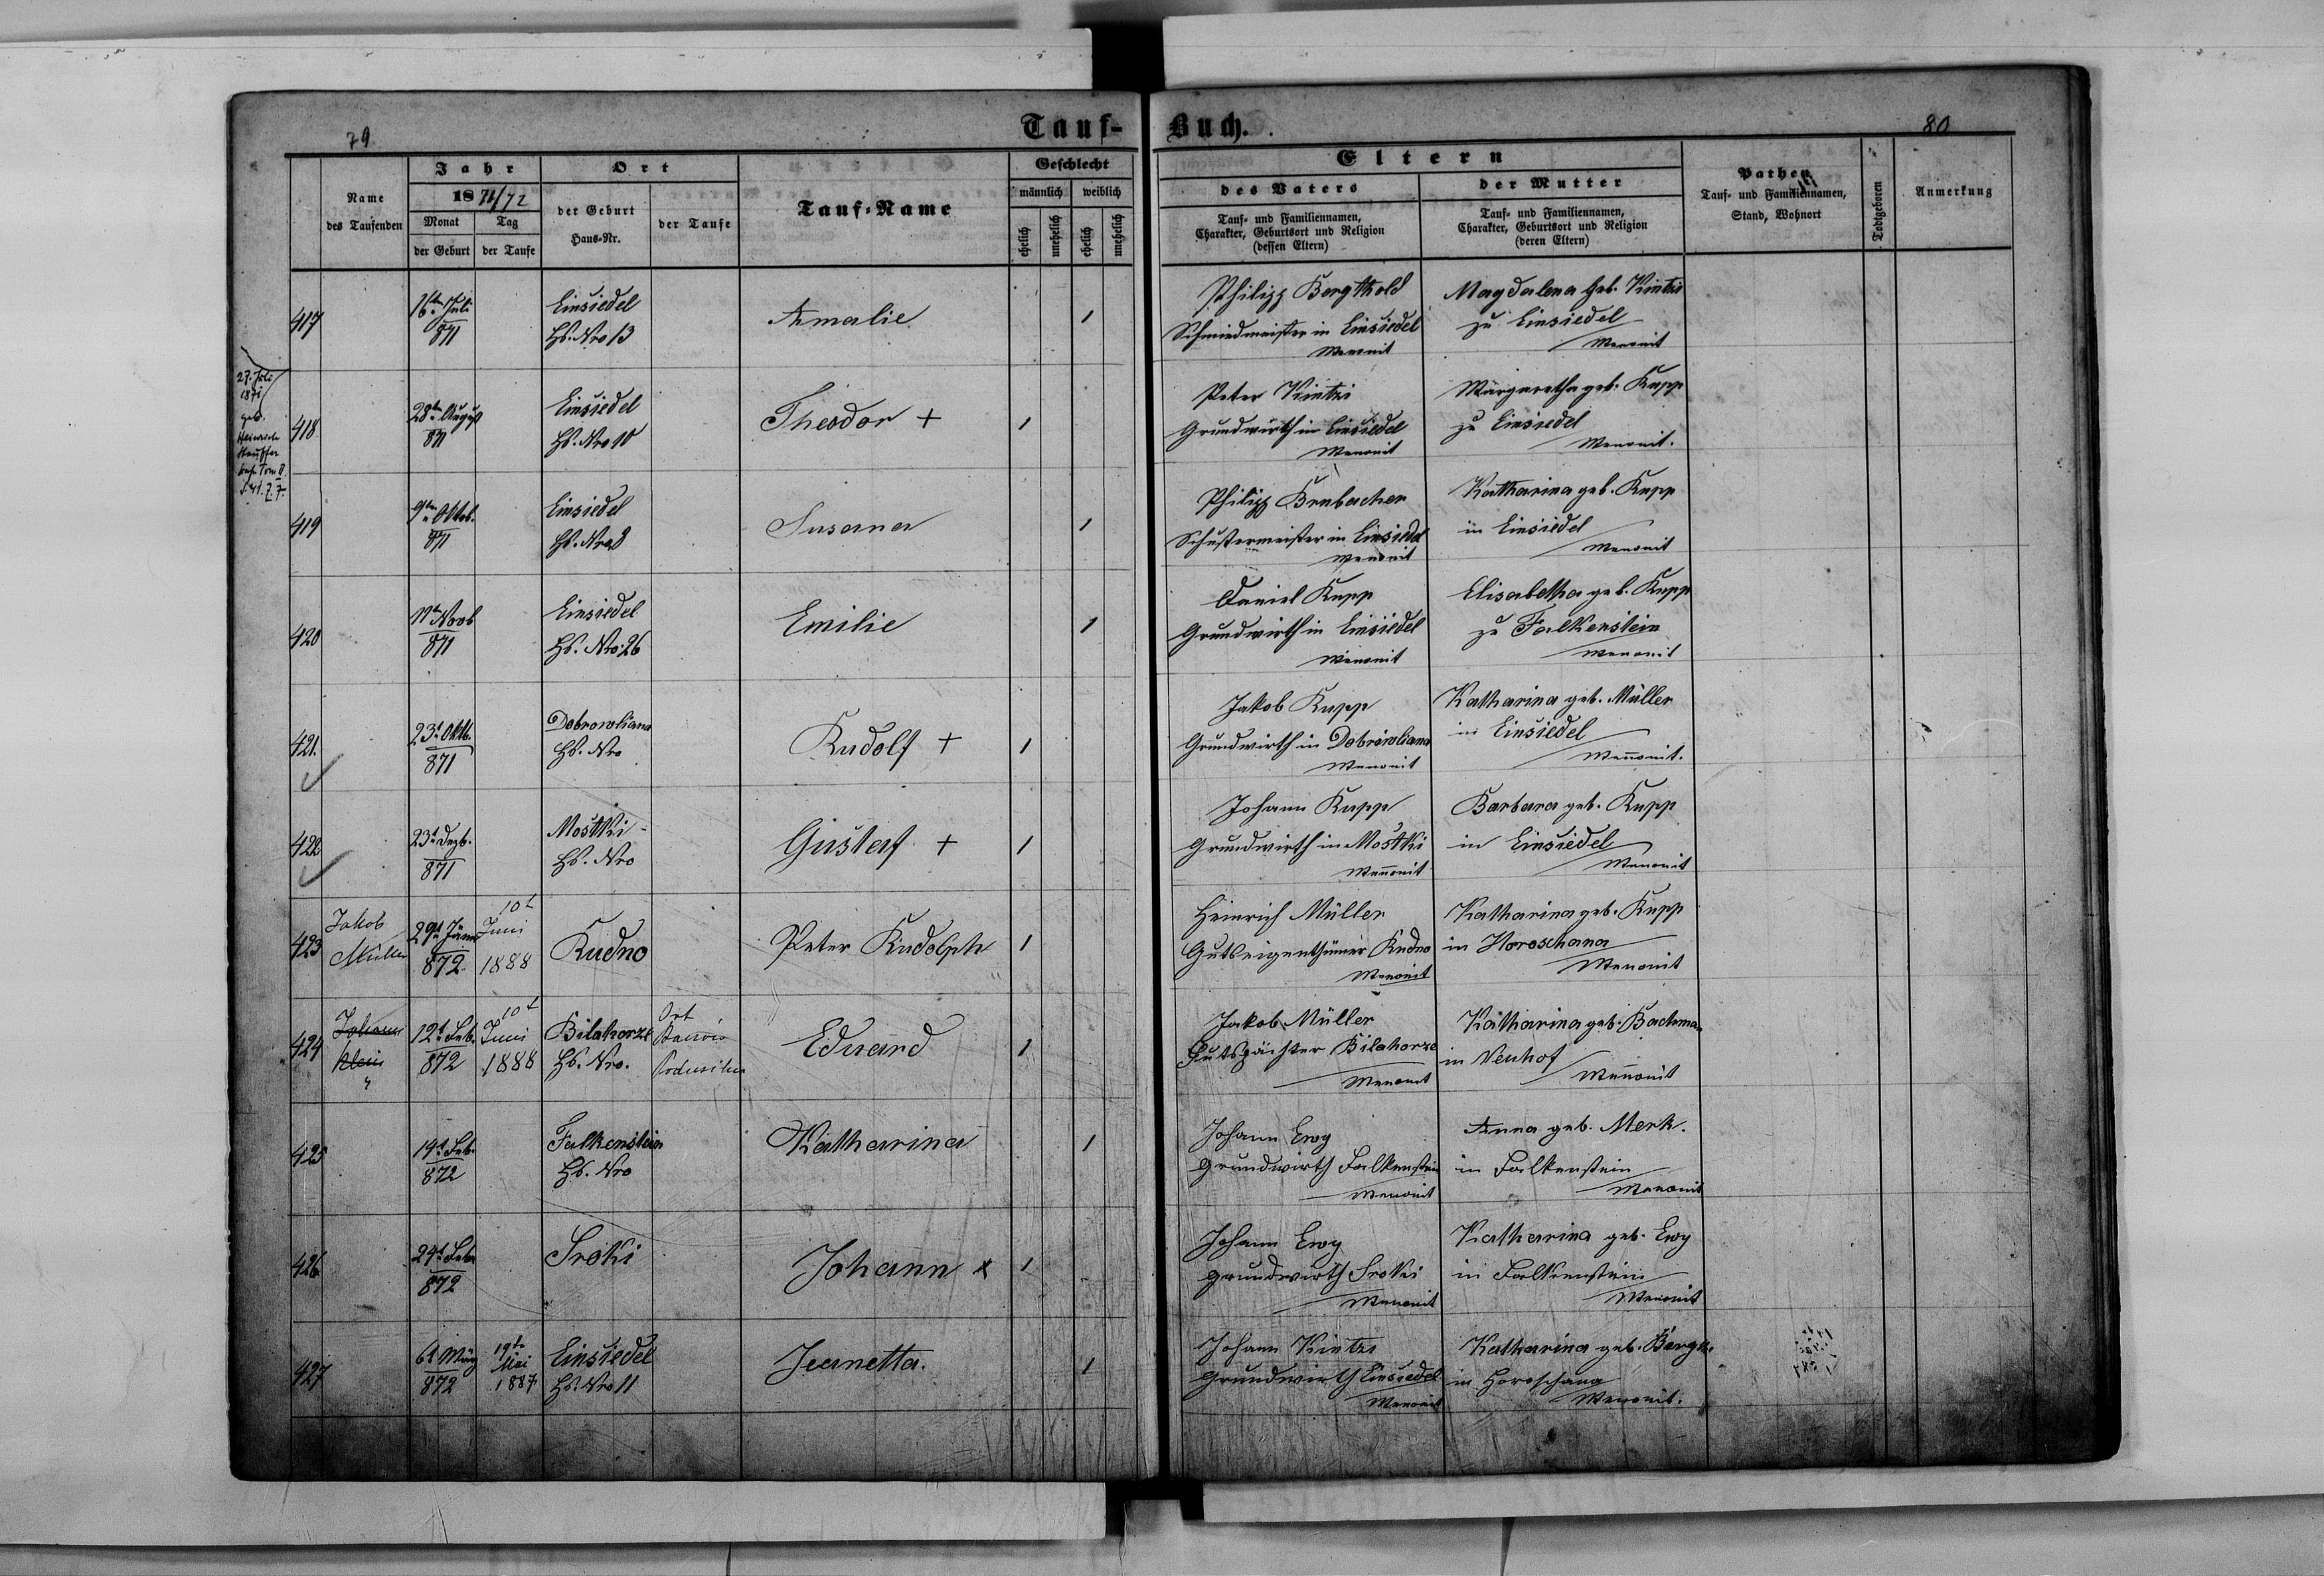 79
Tauf-
Buch.
80
Name
des Taufenden
Jahr
1871/72
Monat
der Geburt
Tag
der Taufe
Ort
der Geburt
Haus-Nr.
der Taufe
Tauf-Name
Geschlecht
männlich
weiblich
ehelich
unehelich
ehelich
unehelich
Eltern
des Vaters
Tauf- und Familiennamen,
Charakter, Geburtsort und Religion
(dessen Eltern)
der Mutter
Tauf- und Familiennamen,
Charakter, Geburtsort und Religion
(deren Eltern)
Pathen
Tauf- und Familiennamen,
Stand, Wohnort
Todtgeboren
Anmerkung
417
16ten Juli
871
Einsiedel
Hs. Nro 13
Amalie
1
Philipp Bergthold
Schmiedmeister in Einsiedel
Menonit
Magdalena geb. Kintzi
zu Einsiedel
Menonit
27. Juli
1871
geb.
Heinrich
Stauffer
418
28ten August
871
Einsiedel
Hs. Nro 10
Theodor +
1
Peter Kintzi
Grundwirth in Einsiedel
Menonit
Margaretha geb. Rupp
zu Einsiedel
Menonit.
419
9ten Oktob.
871
Einsiedel
Hs. Nro 8
Susana
1
Philipp Brubacher
Schustermeister in Einsiedel
Menonit
Katharina geb. Rupp
in Einsiedel
Menonit
420
Novb
871
Einsiedel
Hs. Nro 26
Emilie
1
Daniel Rupp
Grundwirth in Einsiedel
Menonit
Elisabetha geb. Rupp
zu Falkenstein
Menonit
421.
23t Oktb.
871
Dobrowliana
Hs. Nro
Rudolf +
1
Jakob Rupp
Grundwirth in Dobrowliana
Menonit
Katharina geb. Müller
in Einsiedel
Menonit.
422
23t Dezb.
871
Mostki
Hs. Nro
Gustaf +
1
Johann Rupp
Grundwirth in Mostki
Menonit
Barbara geb. Rupp
in Einsiedel
Menonit
423
Jakob
Müller
29t Jänn
872
10t
Juni
1888
Rudno
Peter Rudolph
1
Heinrich Müller
Gutseigenthümer Rudno
Menonit
Katharina geb. Rupp
in Horoschana
Menonit
424
Johann
Klein
12t Feb.
872
10t
Juni
1888
Bilahorze
Hs. Nro.
Ort
Eduard
1
Jakob Müller
Gutspächter Bilahorze
Menonit
Katharina geb. Bachman
in Neuhof
Menonit
425
14t Feb.
872
Falkenstein
Hs. Nro
Katharina
1
Johann Ewy
Grundwirth Falkenstein
Menonit
Anna geb. Merk.
in Falkenstein
Menonit
426
24t Feb
872
Sroki
Johann x
1
Johann Ewy
Grundwirth Sroki
Menonit
Katharina geb. Ewy
in Falkenstein
Menonit
427
6t März
872
19te
Mai
1887
Einsiedel
Hs. Nro 11
Jeanetta.
1
Johann Kintzi
Grundwirth Einsiedel
Menonit
Katharina geb. Bergth.
in Horoschana
Menonit.